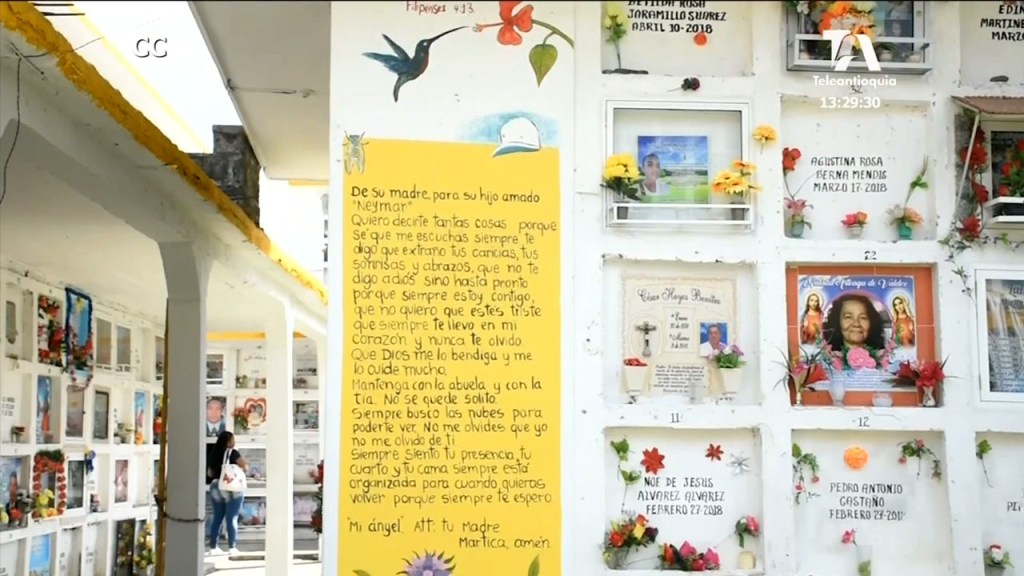 CC
Teleantioquia
13:29:30
Filipenses 4:13
De su madre, para su hijo amado
"Neymar"
Quiero decirte tantas cosas porque
se que me escuchas siempre te
digo que extraño tus caricias, tus
sonrisas y abrazos, que no te
digo adios sino hasta pronto
porque siempre estoy contigo,
que no quiero que estes triste
que siempre te llevo en mi
corazón y nunca te olvido
Que Dios me lo bendiga y me
lo cuide mucho.
Mantenga con la abuela y con la
tía. No se quede solito
Siempre busco las nubes para
poderte ver. No me olvides que yo
no me olvido de ti
Siempre siento tu presencia, tu
cuarto y tu cama siempre está
organizada para cuando quieras
volver porque siempre te espero
"Mi ángel". Att: tu Madre
Martica, amén
ROSA
JARAMILLO SUAREZ
ABRIL 10-2018
MARTINE
MARZO
AGUSTINA ROSA
BERNA MENDIS
MARZO 17-2018
22
César Hoyos Benítez
11
12
NOE DE JESUS
ALVAREZ ALVAREZ
FEBRERO 27-2018
PEDRO ANTONIO
CASTAÑO
FEBRERO 27-2018